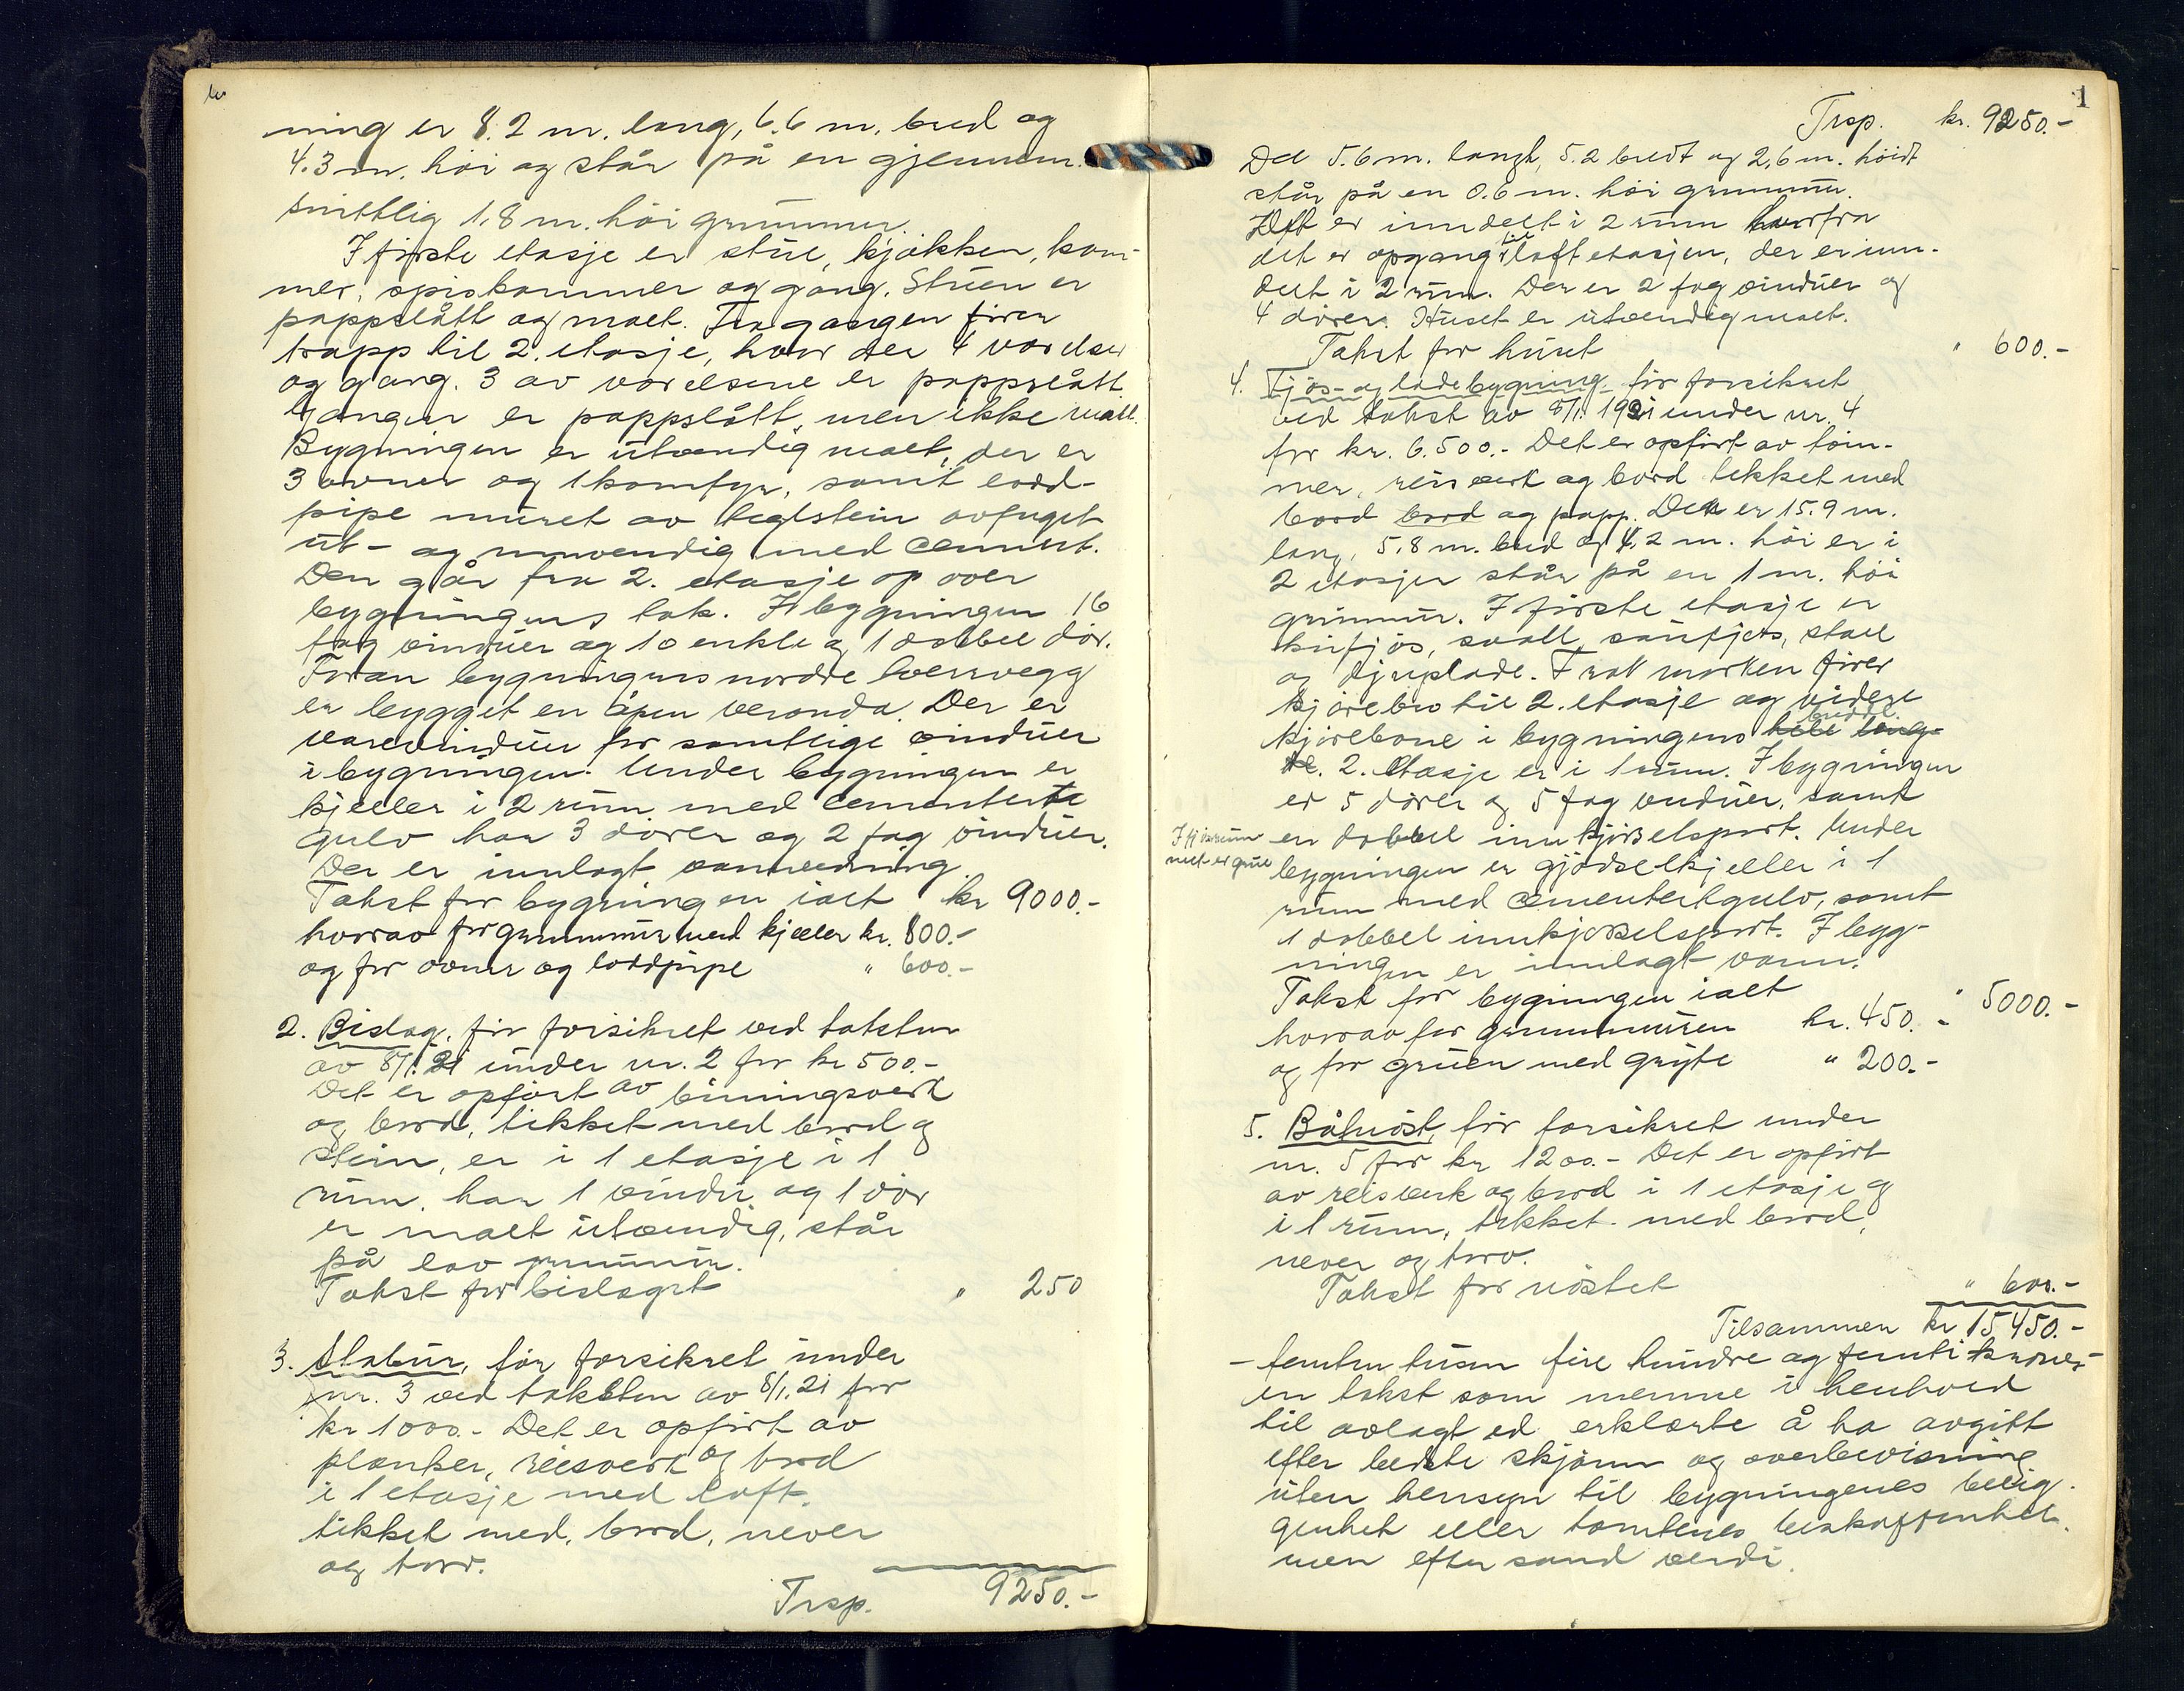 ning er 8.2 m. lang, 6.6 m. bred og
4.3 m. höi og står på en gjennem-
snittlig 1.8 m. höi grunnmur.
I förste etasje er stue, kjökken, kam-
mer, spiskammer og gang. Stuen er
pappslått og malt. Fra gangen förer
trapp til 2. etasje, hvor der 4 værelser
og gang. 3 av værelsene er pappslått
Gangen er pappslått, men ikke malt.
Bygningen er utvendig malt, der er
3 ovner og 1 komfyr, samt lodd-
pipe muret av teglstein avfuget
ut- og innvendig med cement.
Den går fra 2. etasje op over
bygningens tak. I bygningen 16
fag vinduer og 10 enkle og 1 dobbel dör.
Foran bygningens nordre tverrvegg
er bygget en åpen veranda. Der er
varevinduer for samtlige vinduer
i bygningen. Under bygningen er
kjeller i 2 rum med cementerte
gulv har 3 dörer og 2 fag vinduer.
Der er innlagt vannledning.
Takst for bygningen ialt kr 9000.-
hvorav for grunnmur med kjeller kr. 800.-
og for ovner og loddpipe " 600.-
2. Bislag, för forsikret ved taksten
av 8/1.21 under nr. 2 for kr 500.-
Det er opfört av binningsverk
og bord, tekket med bord og
stein, er i 1 etasje i 1
rum, har 1 vindu og 1 dör
er malt utvendig, står
på lav grunnmur.
Takst for bislaget " 250
3. Stabur, för forsikret under
nr. 3 ved taksten av 8/1.21 for
kr 1000.- Det er opfört av
planker, reisverk og bord
i 1 etasje med loft,
tekket med, bord, never
og torv.
Trsp. 9250.-
1
Trsp. kr. 9250.-
Det 5.6 m. langt, 5.2 bredt og 2,6 m. höidt
står på en 0.6 m. höi grunnmur.
Det er inndelt i 2 rum hvorfra
det er opgang til loftetasjen, der er inn-
delt i 2 rum. Der er 2 fag vinduer og
4 dörer. Huset er utvendig malt.
Takst for huset " 600.-
4. Fjös- og ladebygning, för forsikret
ved takst av 8/1. 1921 under nr. 4
for kr. 6.500.- Det er opfört av töm-
mer, reisverk og bord tekket med
bord bord og papp. Den er 15.9 m.
lang, 5.8 m. bred og 4,2 m. höi er i
2 etasjer står på en 1 m. höi
grunnmur. I förste etasje er
kufjös, svall, saufjös, stall
og djuplade. Fra marken förer
kjörebro til 2. etasje og videre
kjörebane i bygningens hele leng- bredde
de. 2. etasje er i 1 rum. I bygningen
er 5 dörer og 5 fag vinduer, samt
I fjösrum
met er grue
en dobbel innkjörselsport. Under
bygningen er gjödselkjeller i 1
rum med cementert gulv, samt
1 dobbel innkjörselsport. I byg-
ningen er innlagt vann.
Takst for bygningen ialt " 5000.-
hvorav for grunnmuren kr. 450.-
og for gruen med gryte " 200.-
5. Båtnöst, för forsikret under
nr. 5 for kr 1200.- Det er opfört
av reisverk og bord i 1 etasje og
i 1 rum, tekket med bord,
never og torv.
Takst for nöstet " 600.-
Tilsammen kr 15450.-
- femten tusen fire hundre og femti kroner -
en takst som menne i henhold
til avlagt ed erklærte å ha avgitt
efter bedste skjönn og overbevisning
uten hensyn til bygningenes belig-
genhet eller tomtenes beskaffenhet.
men efter sand verdi.